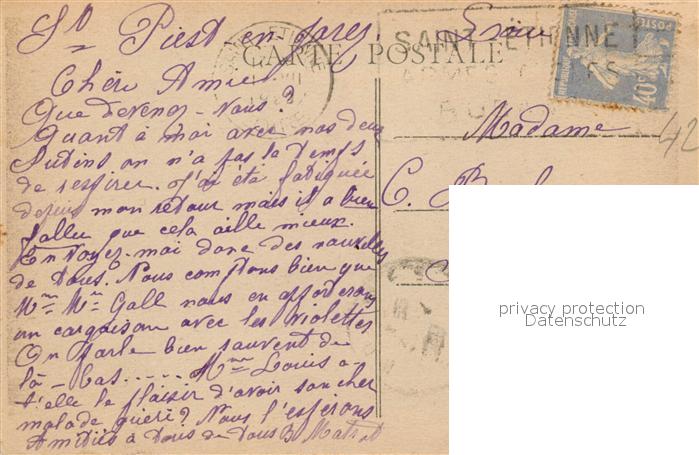 St Priest en Jarez
CARTE POSTALE
SAINT-ÉTIENNE
Chère Amie
Que devenez-vous?
Quant à moi avec nos deux
lutins on n'a pas le temps
de respirer. J'ai été fatiguée
depuis mon retour mais il a bien
fallu que cela aille mieux.
Envoyez-moi donc des nouvelles
de tous. Nous comptons bien que
Mme Mr Gall nous en apporterons
un cargaison avec les violettes
On parle bien souvent de
là-bas..... Mme Louis a
t'elle le plaisir d'avoir son cher
malade guéri? Nous l'espérons
Amitiés à tous de tous
Madame
C.
40c
42
privacy protection
Datenschutz